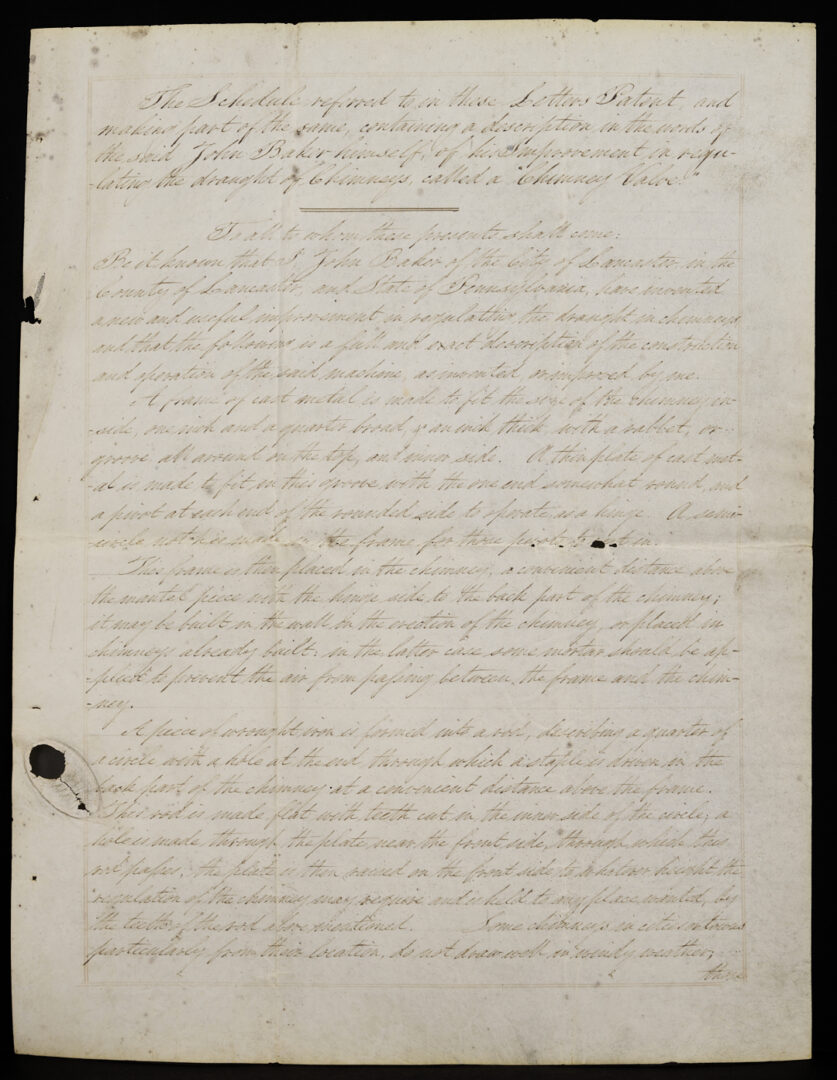 The Schedule referred to in these Letters Patent, and
making part of the same, containing a description, in the words of
the said John Baker himself, of his Improvement in regu-
-lating the draught of Chimneys, called a "Chimney Valve."
To all to whom these presents shall come:
Be it known that I John Baker of the City of Lancaster, in the
County of Lancaster, and State of Pennsylvania, have invented
a new and useful improvement in regulating the draught in chimneys
and that the following is a full and exact description of the construction
and operation of the said machine, as invented or improved by me.
A frame of cast metal is made to fit the size of the chimney in-
-side, one inch and a quarter broad, & an inch thick, with a rabbet, or
groove all around on the top, and inner side. A thin plate of cast met-
-al is made to fit in this groove with the one end somewhat round, and
a pivot at each end of the rounded side to operate as a hinge. A semi-
-circle notch is made in the frame for those pivots to in.
This frame is then placed in the chimney, a convenient distance above
the mantel piece with the hinge side to the back part of the chimney;
it may be built in the wall in the erection of the chimney, or placed in
chimneys already built: in the latter case some mortar should be ap-
-plied to prevent the air from passing between the frame and the chim-
-ney.
A piece of wrought iron is formed into a rod, describing a quarter of
a circle with a hole at the end through which a staple is driven in the
back part of the chimney at a convenient distance above the frame.
This rod is made flat with teeth cut in the inner side of the circle; a
hole is made through the plate, near the front side, through which this
rod passes; the plate is then raised on the front side, to whatever height the
regulation of the chimney may require and is held to any place wanted, by
the teeth of the rod above mentioned. Some chimneys in cities or towns
particularly from their location, do not draw well in windy weather;